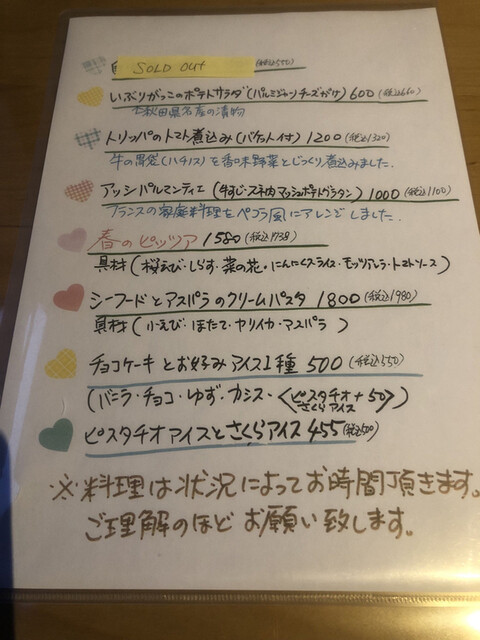 SOLD OUT (税込550)
いぶりがっこのポテトサラダ(パルミジャーノチーズがけ) 600 (税込660)
*秋田県名産の漬物
トリッパのトマト煮込み(バケット付) 1200 (税込1320)
牛の胃袋(ハチノス)を香味野菜とじっくり煮込みました.
アッシパルマンティエ (牛すじ・スネ肉マッシュポテトグラタン) 1000 (税込1100)
フランスの家庭料理をペコラ風にアレンジしました.
春のピッツァ 1580 (税込1738)
具材(桜えび・しらす・菜の花・にんにくスライス・モッツァレラ・トマトソース)
シーフードとアスパラのクリームパスタ 1800 (税込1980)
具材(小えび・ほたて・ヤリイカ・アスパラ)
チョコケーキとお好みアイス1種 500 (税込550)
(バニラ・チョコ・ゆず・カシス・<ピスタチオ+50>)
さくらアイス
ピスタチオアイスとさくらアイス 455 (税込500)
※料理は状況によってお時間頂きます。
ご理解のほどお願い致します。